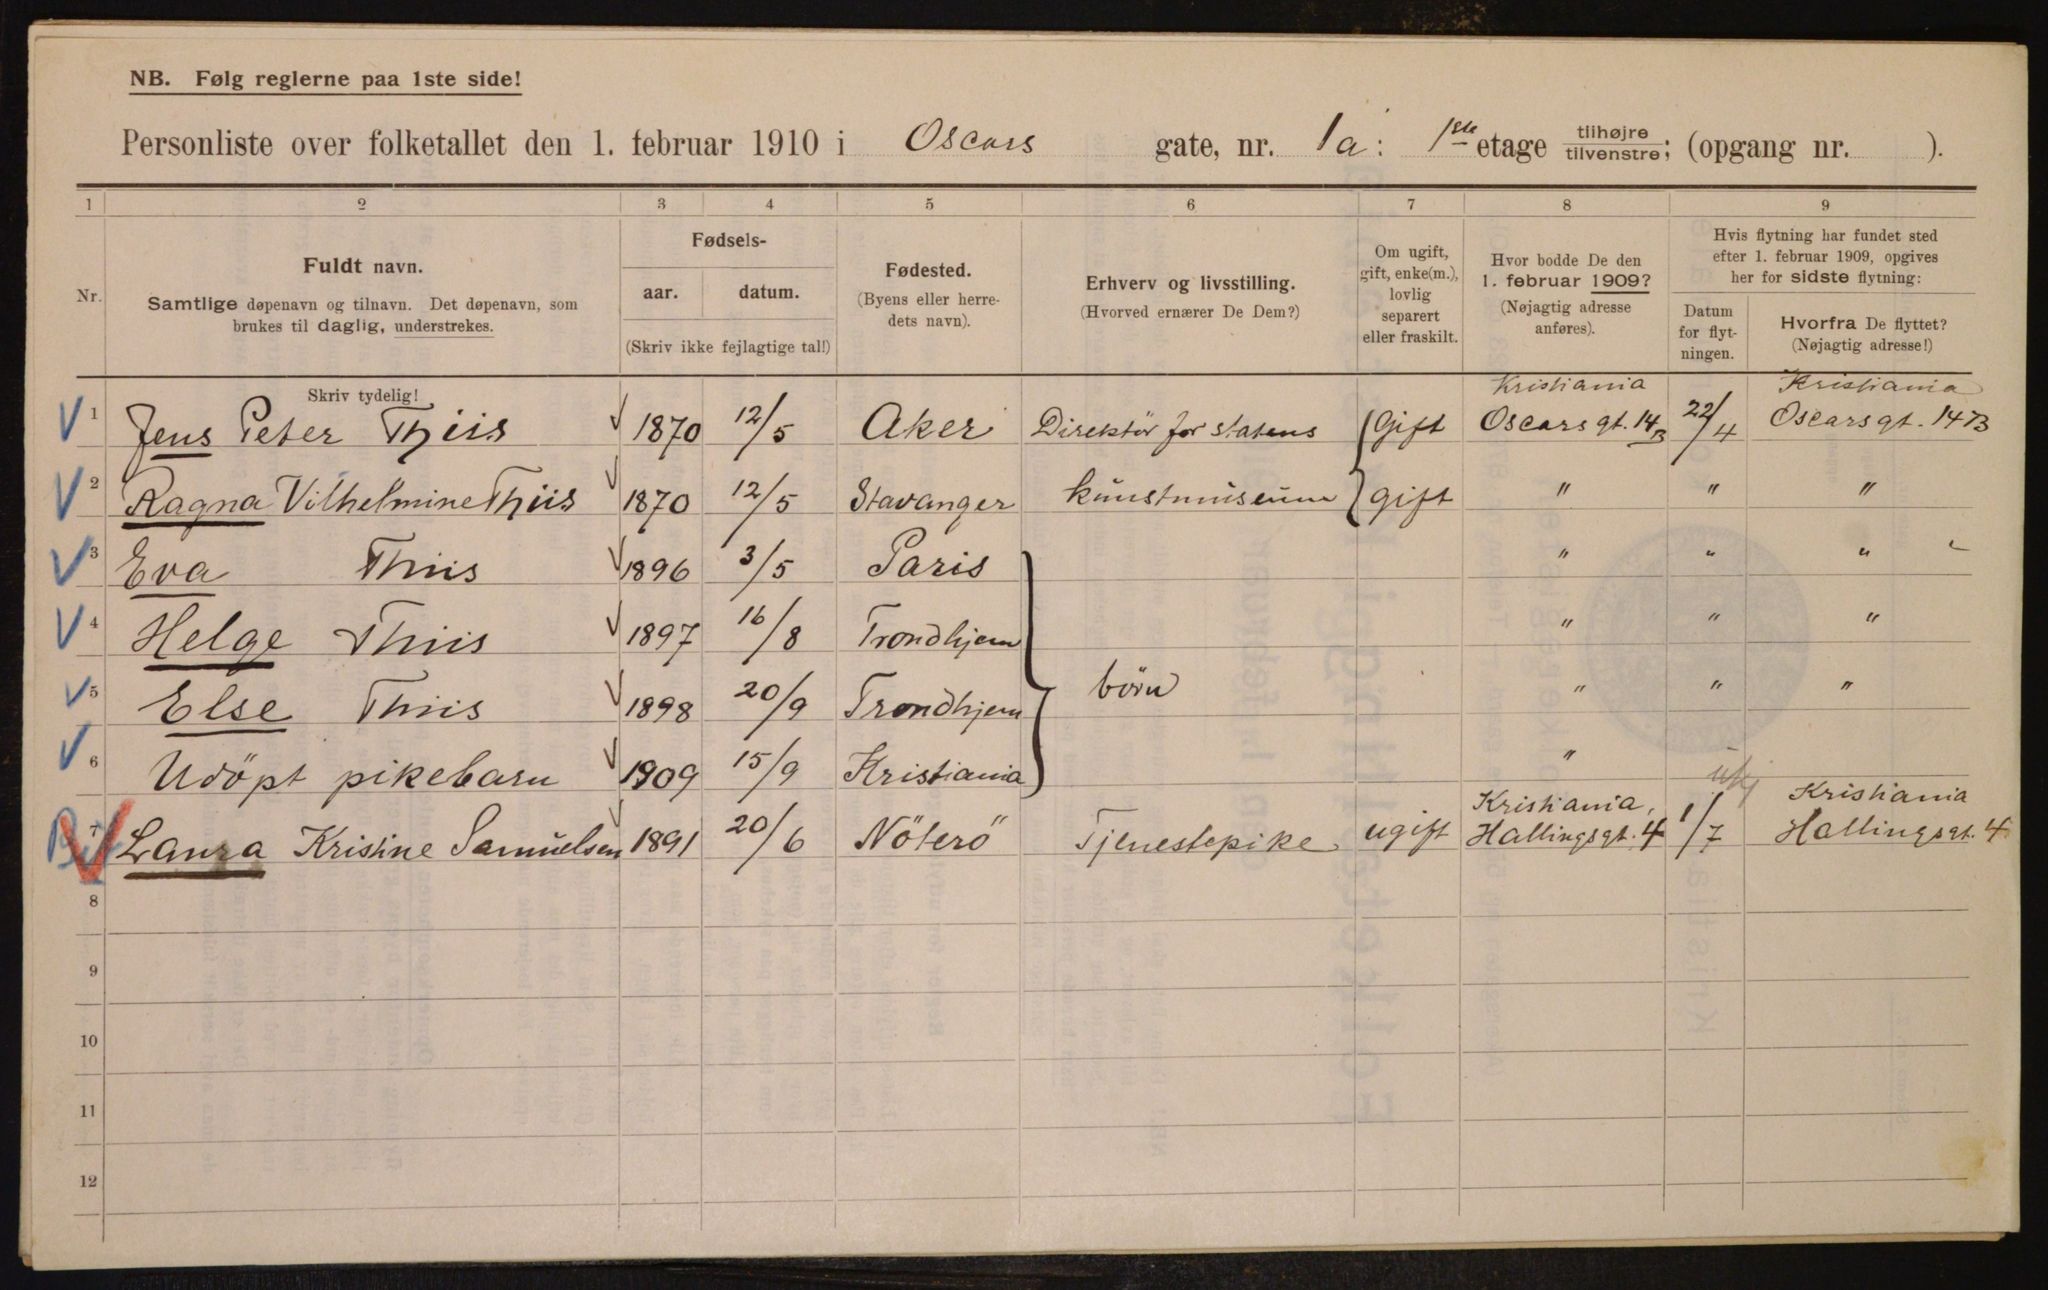 NB. Følg reglerne paa 1ste side!
Personliste over folketallet den 1. februar 1910 i Oscars gate, nr. 1a: 1ste etage tilhøjre tilvenstre; (opgang nr. ).
1 2 3 4 5 6 7 8 9
Nr.
Fuldt navn.
Samtlige døpenavn og tilnavn. Det døpenavn, som
brukes til daglig, understrekes.
Fødsels-
aar. datum.
(Skriv ikke fejlagtige tal!)
Fødested.
(Byens eller herre-
dets navn).
Erhverv og livsstilling.
(Hvorved ernærer De Dem?)
Om ugift,
gift, enke(m.),
lovlig
separert
eller fraskilt.
Hvor bodde De den
1. februar 1909?
(Nøjagtig adresse
anføres).
Hvis flytning har fundet sted
efter 1. februar 1909, opgives
her for sidste flytning:
Datum
for flyt-
ningen.
Hvorfra De flyttet?
(Nøjagtig adresse!)
Skriv tydelig!
Kristiania Kristiania
1 Jens Peter Thiis 1870 12/5 Aker Direktör for statens Gift Oscars gt. 14B 22/4 Oscarsgt. 14B
2 Ragna Vilhelmine Thiis 1870 12/5 Stavanger kunstmuseum gift " " "
3 Eva Thiis 1896 3/5 Paris " " "
4 Helge Thiis 1897 16/8 Trondhjem " " "
5 Else Thiis 1898 20/9 Trondhjem börn " " "
6 Udöpt pikebarn 1909 15/9 Kristiania "
Kristiania, Kristiania
7 Laura Kristine Samuelsen 1891 20/6 Nöterö Tjenestepike ugift Hallingsgt. 4 1/7 Hallingsgt. 4
8
9
10
11
12